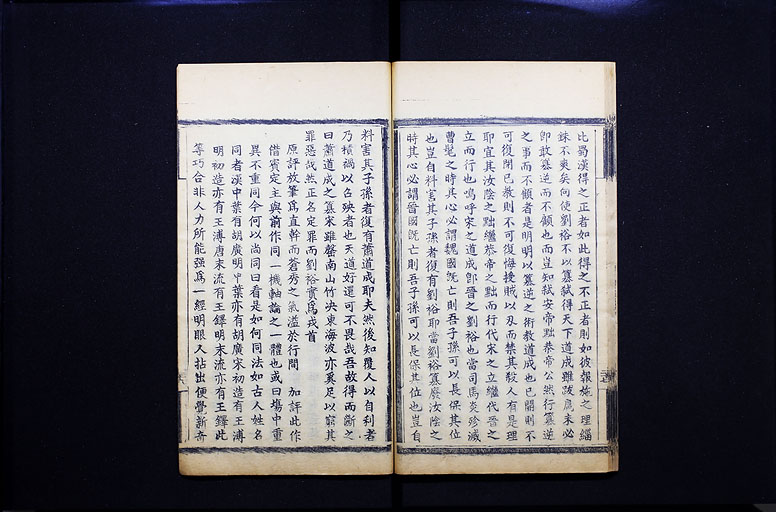 比蜀漢得之正者如此得之不正者則如彼報施之理緇
銖不爽矣向使劉裕不以篡弒得天下道成雖跋扈未必
卽敢篡逆而不顧也而豈知弒安帝黜恭帝公然行篡逆
之事而不顧者是明明以篡逆之術教道成也已開則不
可復閉已教則不可復悔授賊以刃而禁其殺人有是理
耶宜其汝陰之黜繼恭帝之黜而行代宋之立繼代晉之
立而行也嗚呼宋之道成卽晉之劉裕也當司馬炎珍滅
曹髦之時其心必謂魏國旣亡則吾子孫可以長保其位
也豈自料害其子孫者復有劉裕耶當劉裕篡廢汝陰之
時其心必謂晉國旣亡則吾子孫可以長保其位也豈自
料害其子孫者復有蕭道成耶夫然後知覆人以自利者
乃積禍以召殃者也天道好還可不畏哉吾故得而斷之
曰蕭道成之篡宋雖罄南山竹决東海波亦奚足以窮其
罪惡哉然正名定罪而劉裕實爲戎首
原評放筆爲直幹而蒼秀之氣溢於行間 加評此作
借賓定主與前作同一機軸論之一體也或曰塲中重
異不重同今何以尚同曰看是如何同法如古人姓名
同者漢中葉有胡廣明中葉亦有胡廣宋初造有王溥
明初造亦有王溥唐末流有王鐸明末流亦有王鐸此
等巧合非人力所能强爲一經明眼人拈出便覺新奇